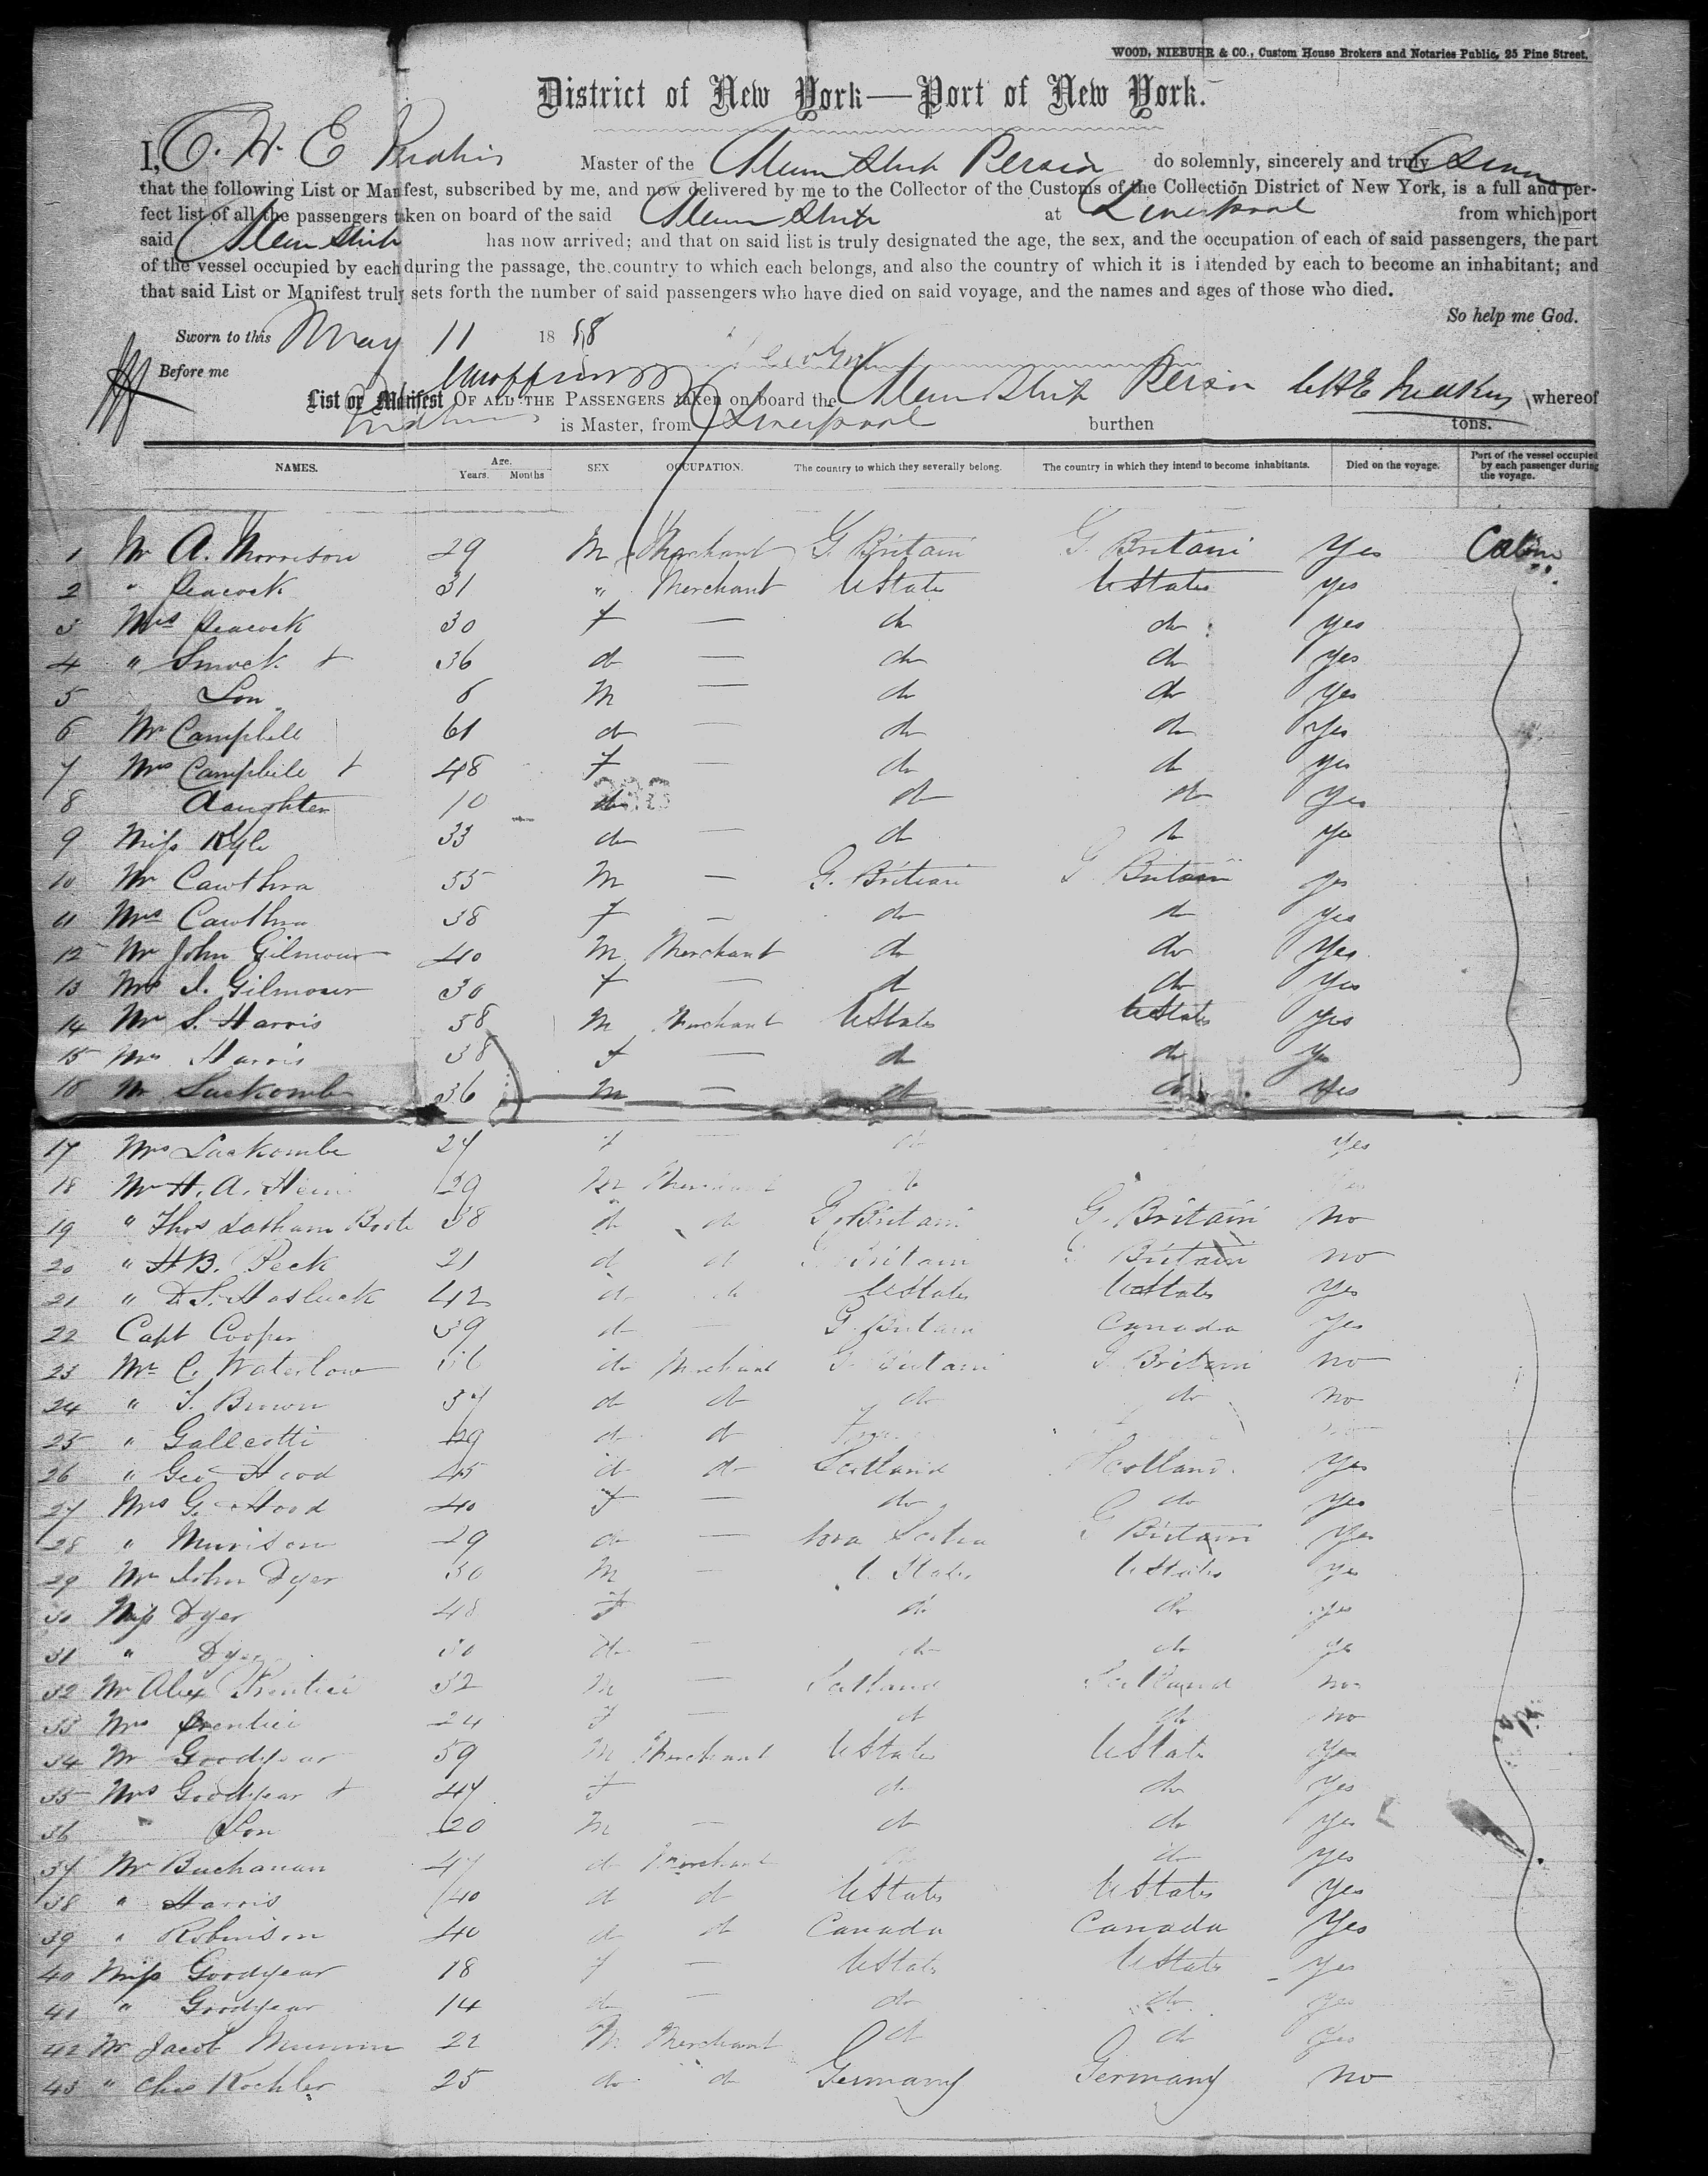 WOOD, NIEBUHR & CO., Custom House Brokers and Notaries Public, 25 Pine Street.
District of New York—Port of New York.
I, C. H. E Judkins Master of the Steam Ship Persia do solemnly, sincerely and truly Swear
that the following List or Manifest, subscribed by me, and now delivered by me to the Collector of the Customs of the Collection District of New York, is a full and per-
fect list of all the passengers taken on board of the said Steam Ship at Liverpool from which port
said Steam Ship has now arrived; and that on said list is truly designated the age, the sex, and the occupation of each of said passengers, the part
of the vessel occupied by each during the passage, the country to which each belongs, and also the country of which it is intended by each to become an inhabitant; and
that said List or Manifest truly sets forth the number of said passengers who have died on said voyage, and the names and ages of those who died.
So help me God.
Sworn to this May 11 1858
Before me
List or Manifest OF ALL THE PASSENGERS taken on board the Steam Ship Persia CHE Judkins whereof
is Master, from Liverpool burthen tons.
NAMES. Age. Years. Months SEX OCCUPATION. The country to which they severally belong. The country in which they intend to become inhabitants. Died on the voyage. Part of the vessel occupied by each passenger during the voyage.
1 Mr A. Morrison 29 M Merchant G. Britain G. Britain Yes Cabin
2 " Peacock 31 " Merchant UStates UStates yes
3 Mrs Peacock 30 f — do do yes
4 " Smock + 36 do — do do yes
5 Son 6 M — do do Yes
6 Mr Campbell 61 do — do do Yes
7 Mrs Campbell + 48 f — do do yes
8 daughter 10 do do do Yes
9 Miss Kyle 33 do — do do ye
10 Mr Cawthra 55 M — G. Britain G Britain yes
11 Mrs Cawthra 38 f — do do yes
12 Mr John Gilmour 40 M Merchant do do Yes
13 Mrs J. Gilmour 30 f — do do Yes
14 Mr S. Harris 58 M Merchant UStates UStates yes
15 Mrs Harris 38 f — do do Yes
16 Mr Luckombe 36 M — do do Yes
17 Mrs Luckombe 27 f — do Yes
18 Mr H. A. Hein 29 M Merchant do
19 " Thos Latham Boote 38 do do G. Britain G. Britain No
20 " H B. Peck 21 do do Britain Britain no
21 " D S. Hasluck 42 do do UStates UStates Yes
22 Capt Cooper 39 do — G. Britain Canada Yes
23 Mr C. Waterlow 36 do Merchant G. Britain G Britain no
24 " J. Brown 37 do do do do no
25 " Galleotti 29 do do
26 " Geo Hood 45 do do Scotland Scotland Yes
27 Mrs G. Hood 40 f — do do Yes
28 " Morrison 29 do — Nova Scotia G Britain Yes
29 Mr John Dyer 50 M — U. States UStates yes
30 Miss Dyer 48 f do do yes
31 " Dyer 30 do — do do ye
32 Mr Alex Prentice 32 M — Scotland Scotland no
33 Mrs Prentice 24 f — do do no
34 Mr Goodyear 59 M Merchant UStates UStates yes
35 Mrs Goodyear + 47 f do do Yes
36 " Son 20 M — do do yes
37 Mr Buchanan 47 do Merchant do yes
38 " Harris 40 do do UStates UStates Yes
39 " Robinson 40 do do Canada Canada Yes
40 Miss Goodyear 18 f — UStates UStates Yes
41 " Goodyear 14 do — do do yes
42 Mr Jacob 22 M Merchant do do yes
43 " Chas Kochler 25 do do Germany Germany no